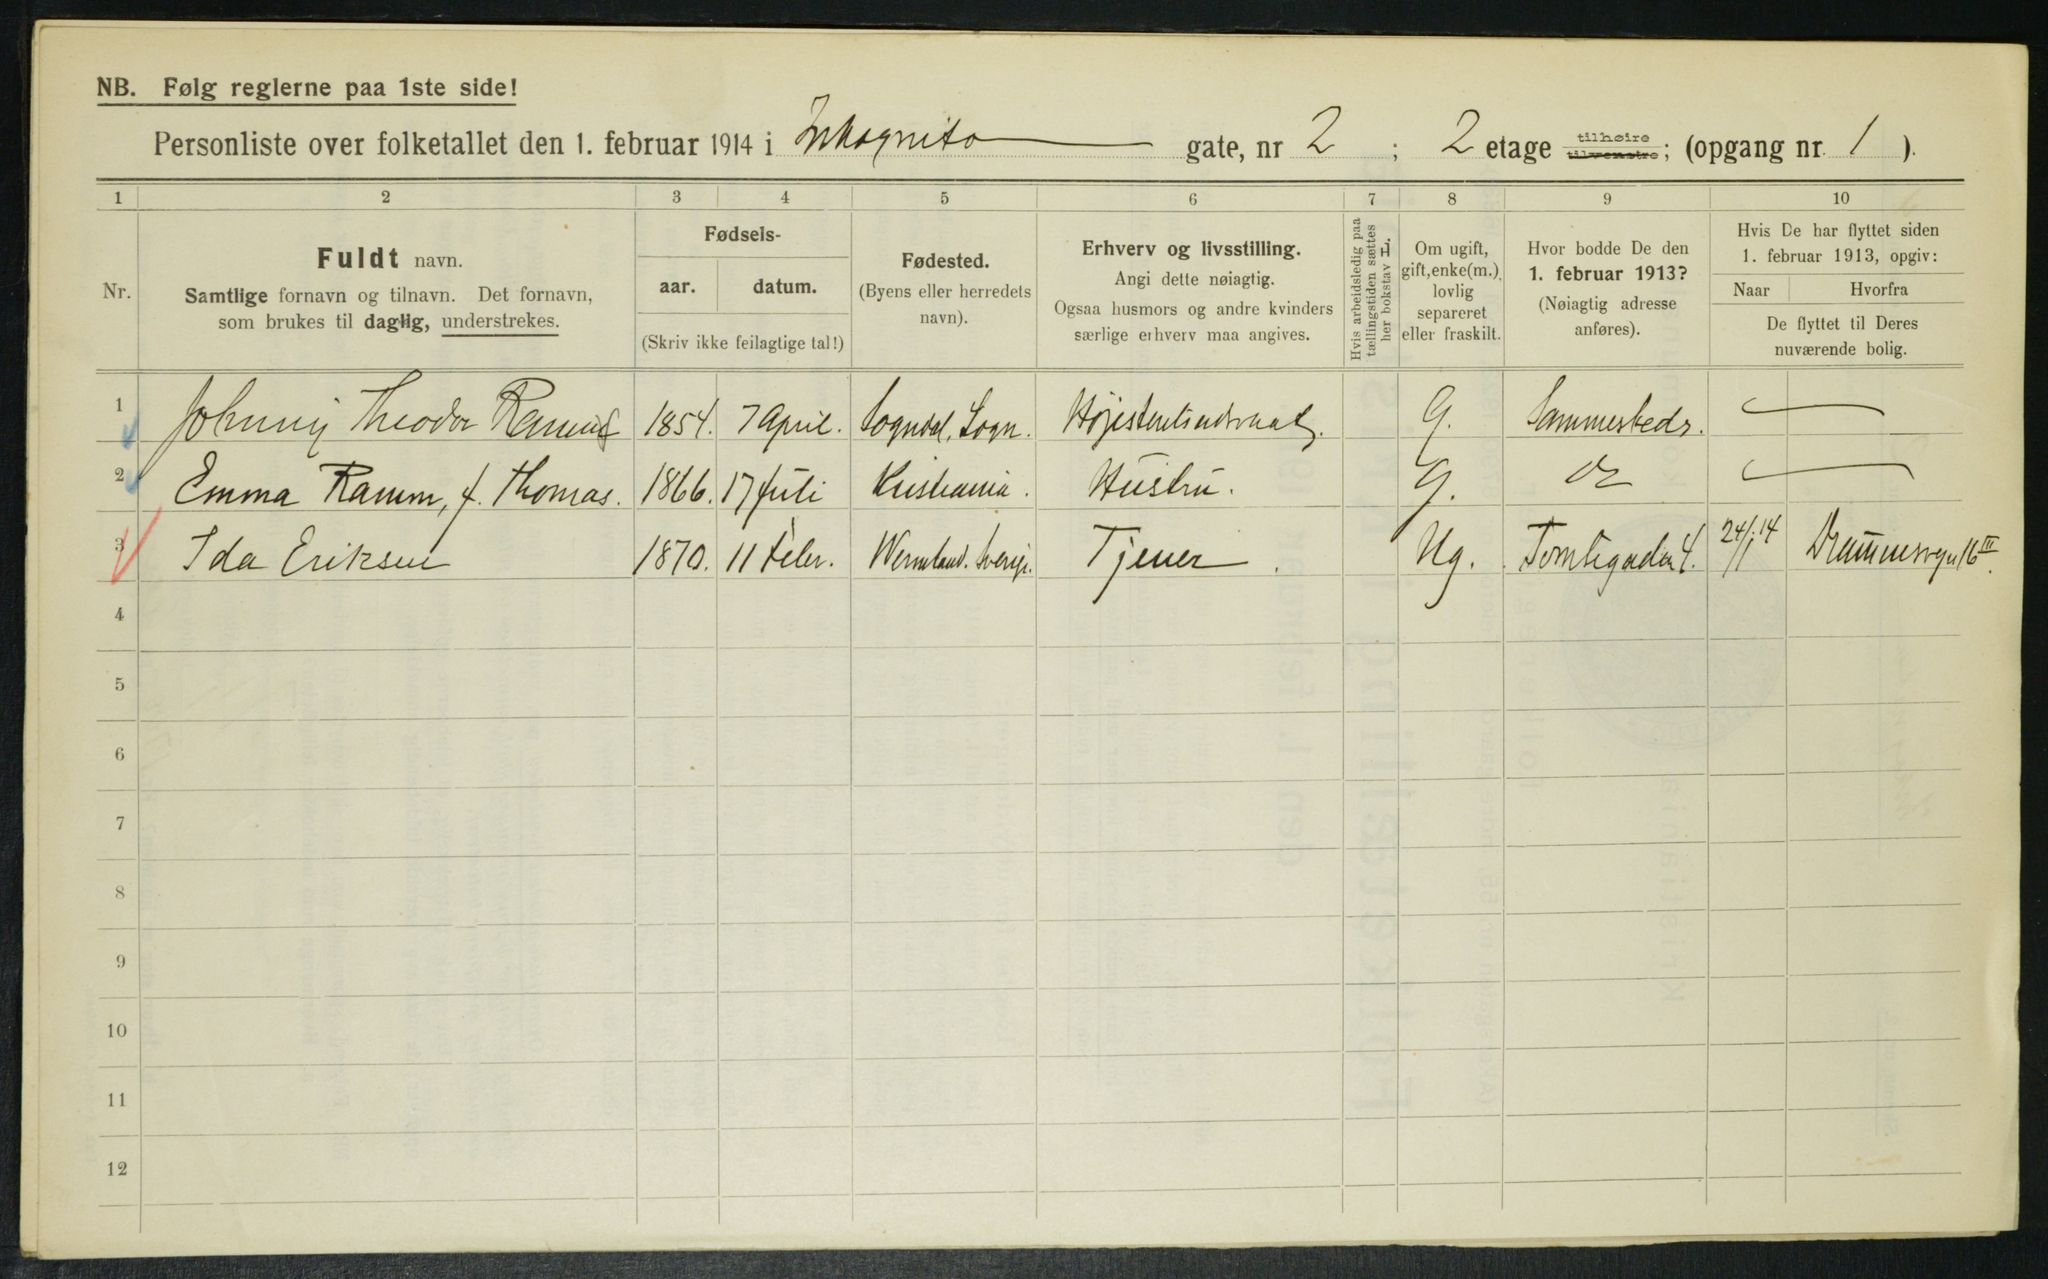 NB. Følg reglerne paa 1ste side!
Personliste over folketallet den 1. februar 1914 i Inkognito gate, nr 2 ; 2 etage tilhøire tilvenstre; (opgang nr. 1 ).
1 2 3 4 5 6 7 8 9 10
Nr.
Fuldt navn.
Samtlige fornavn og tilnavn. Det fornavn,
som brukes til daglig, understrekes.
Fødsels-
aar. datum.
(Skriv ikke feilagtige tal!)
Fødested.
(Byens eller herredets
navn).
Erhverv og livsstilling.
Angi dette nøiagtig.
Ogsaa husmors og andre kvinders
særlige erhverv maa angives.
Hvis arbeidsledig paa
tællingstiden sættes
her bokstav L.
Om ugift,
gift, enke(m.),
lovlig
separeret
eller fraskilt.
Hvor bodde De den
1. februar 1913?
(Nøiagtig adresse
anføres).
Hvis De har flyttet siden
1. februar 1913, opgiv:
Naar Hvorfra
De flyttet til Deres
nuværende bolig.
1 Johnny Theodor Ramm 1854. 7 April. Sogndal, Sogn. G. Sammesteds.
2 Emma Ramm, f. Thomas. 1866. 17 Juli Kristiania. Hustru. G.
3 Ida Eriksen 1870. 11 Febr. Wermland. Sverige. Tjener. Ug. Tomtegaden 4. 24/1 14 Drammensvn 16 III.
4
5
6
7
8
9
10
11
12